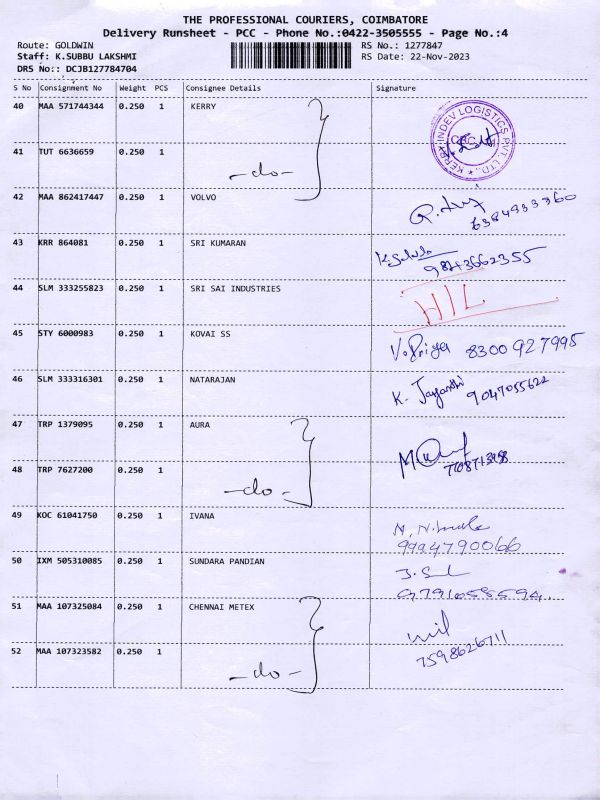 THE PROFESSIONAL COURIERS, COIMBATORE
Delivery Runsheet - PCC - Phone No.:0422-3505555 - Page No.:4
Route: GOLDWIN RS No.: 1277847
Staff: K.SUBBU LAKSHMI RS Date: 22-Nov-2023
DRS No:: DCJB127784704
S No Consignment No Weight PCS Consignee Details Signature
40 MAA 571744344 0.250 1 KERRY
KERRY INDEV LOGISTICS PVT. LTD.
41 TUT 6636659 0.250 1 -do-
42 MAA 862417447 0.250 1 VOLVO
43 KRR 864081 0.250 1 SRI KUMARAN 9843662355
44 SLM 333255823 0.250 1 SRI SAI INDUSTRIES HIL
45 STY 6000983 0.250 1 KOVAI SS V. Priya 8300927995
46 SLM 333316301 0.250 1 NATARAJAN K. Jayanthi 9047055622
47 TRP 1379095 0.250 1 AURA
48 TRP 7627200 0.250 1 -do-
49 KOC 61041750 0.250 1 IVANA N. Nirmala
9994790066
50 IXM 505310085 0.250 1 SUNDARA PANDIAN
9791058594
51 MAA 107325084 0.250 1 CHENNAI METEX
7598626711
52 MAA 107323582 0.250 1 -do-